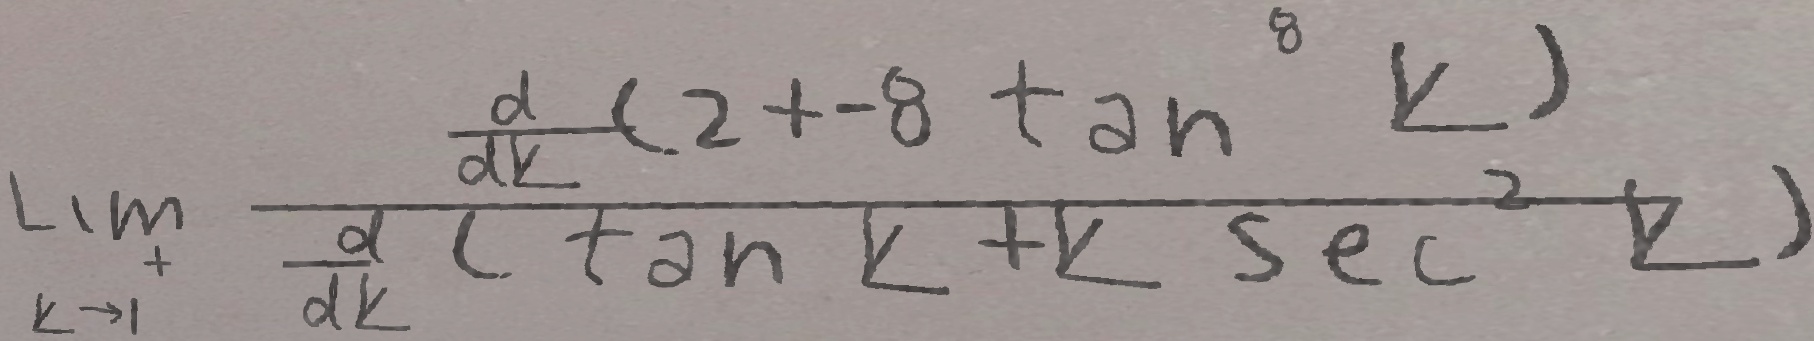 \lim_{k \to 1^+} \frac{\frac{d}{dk}(2+-8\tan^8 k)}{\frac{d}{dk}(\tan k+k\sec^2 k)}